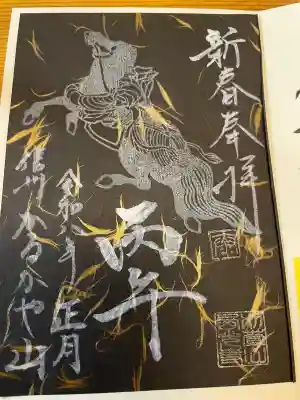 新春奉拝
丙午
令和八年 正月
信州かるかや山